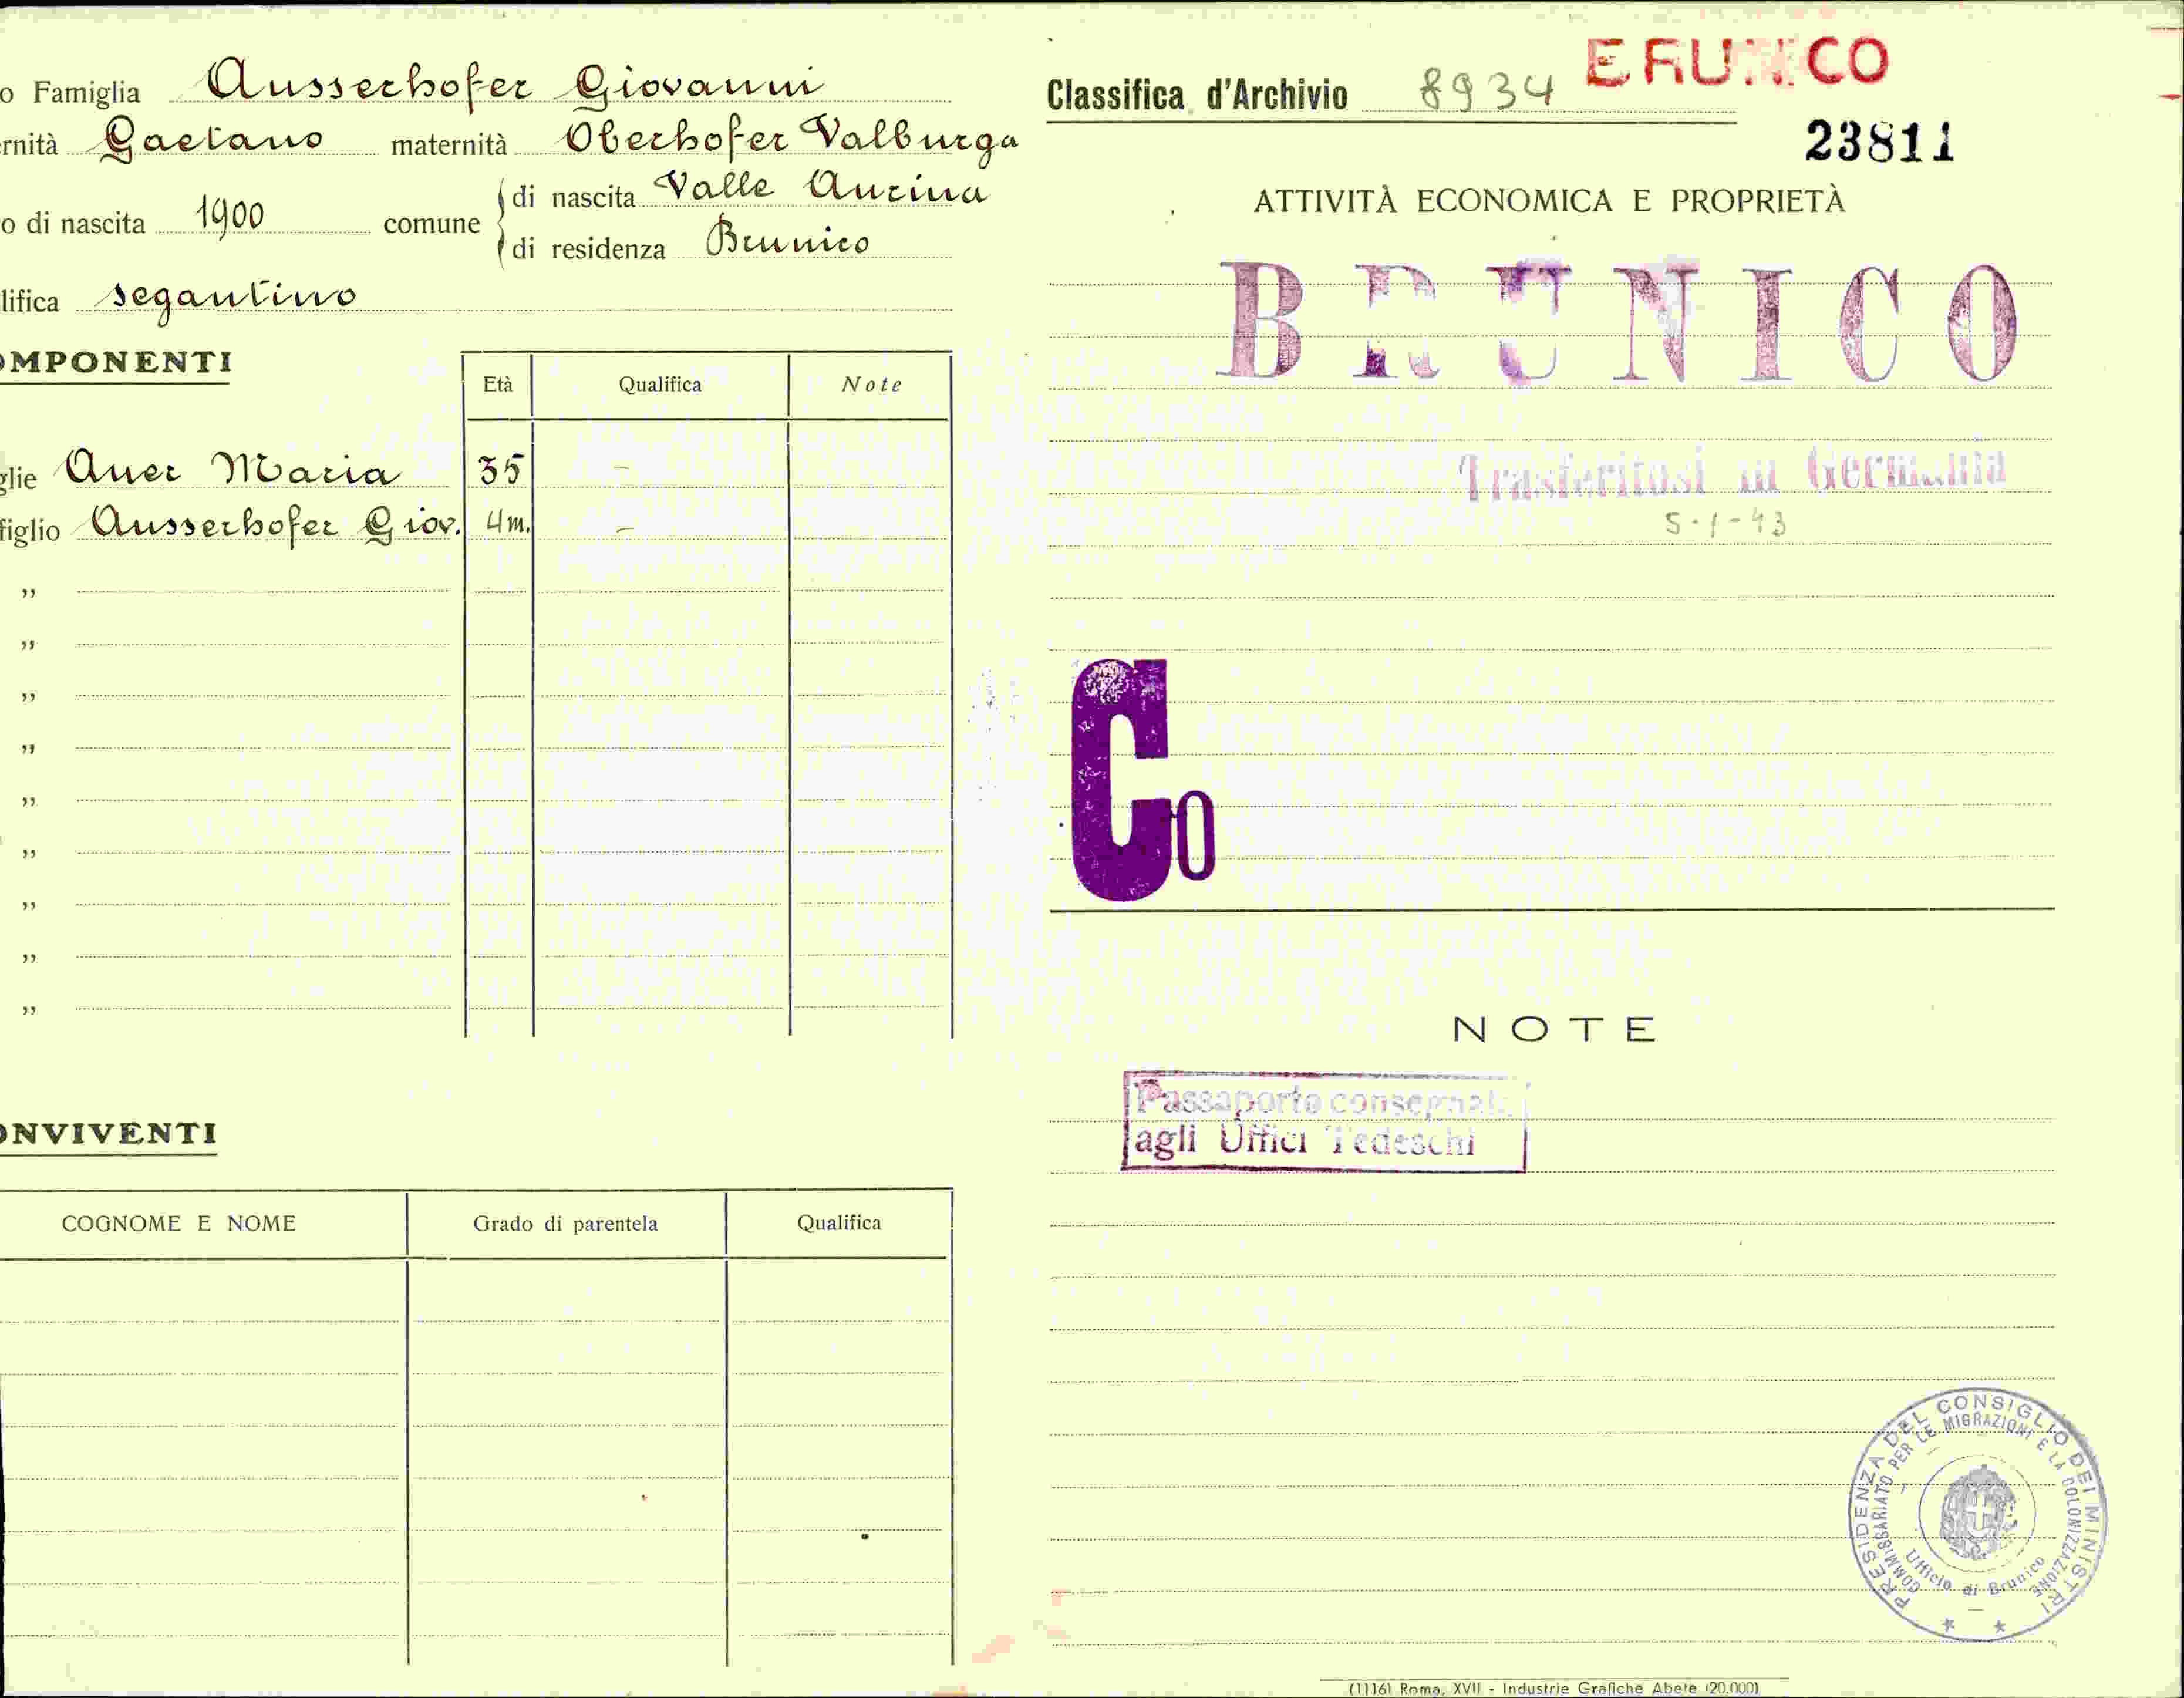 o Famiglia Ausserhofer Giovanni
rnità Gaetano maternità Oberhofer Valburga
o di nascita 1900 comune di nascita Valle Aurina
di residenza Brunico
lifica segantino
OMPONENTI
Età Qualifica Note
glie Auer Maria 35 -
figlio Ausserhofer Giov. 4m. -
"
"
"
"
"
"
"
"
"
ONVIVENTI
COGNOME E NOME Grado di parentela Qualifica
Classifica d'Archivio 8934 BRUNICO
23811
ATTIVITÀ ECONOMICA E PROPRIETÀ
BRUNICO
Trasferitosi in Germania
5-1-43
Co
NOTE
Passaporto consegnat
agli Uffici Tedeschi
PRESIDENZA DEL CONSIGLIO DEI MINISTRI
COMMISSARIATO PER LE MIGRAZIONI E LA COLONIZZAZIONE
Ufficio di Brunico
(1116) Roma, XVII - Industrie Grafiche Abete (20.000)